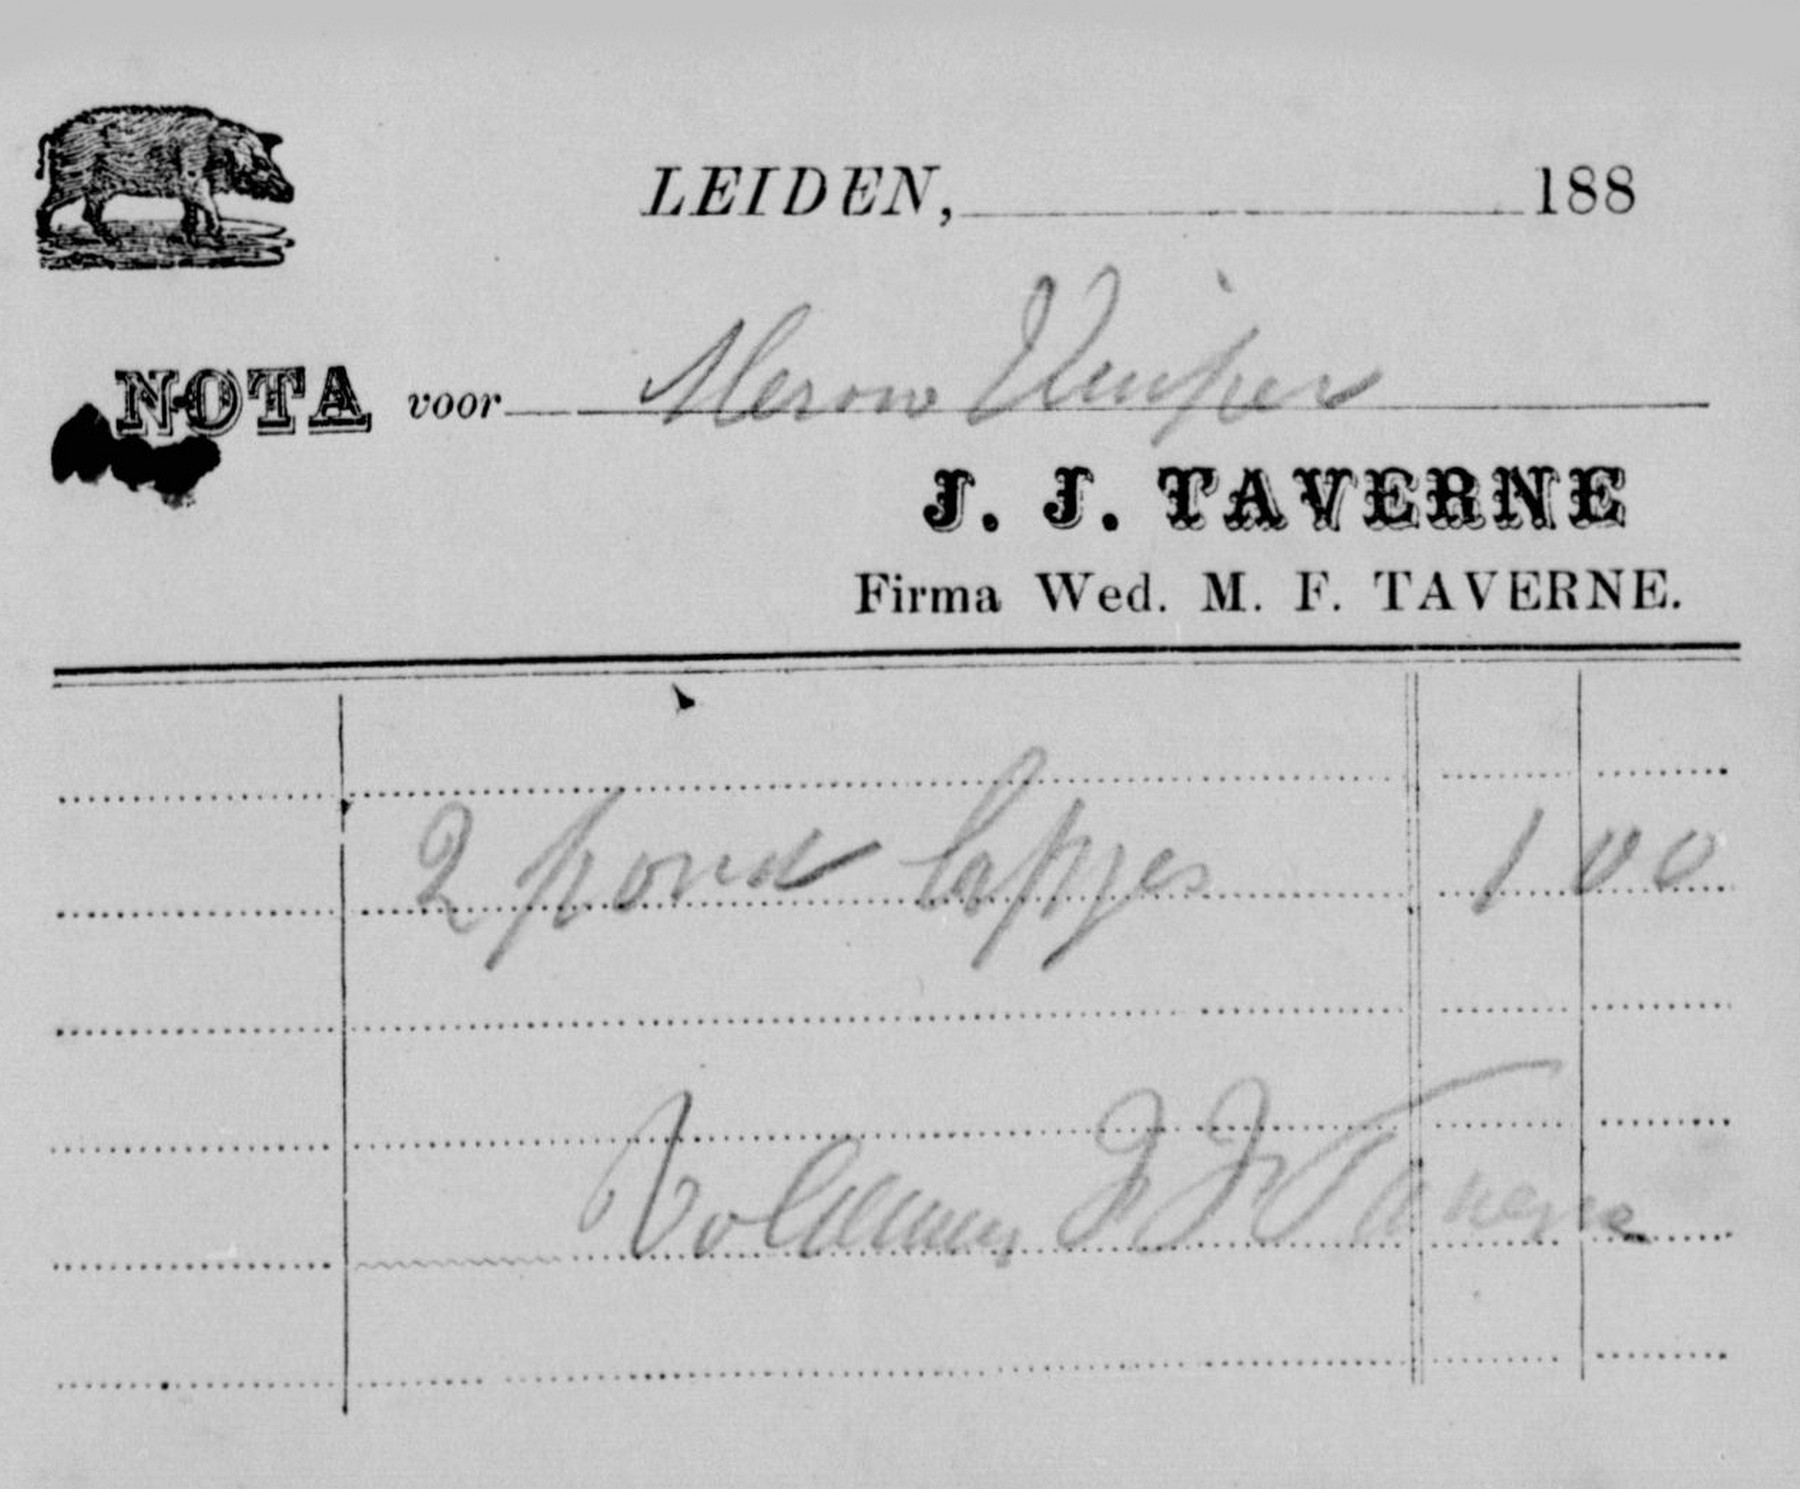 LEIDEN, 188
NOTA voor Merow Kuiper
J. J. TAVERNE
Firma Wed. M. F. TAVERNE.
2 pond lapjes 1 00
Voldaan J J Taverne